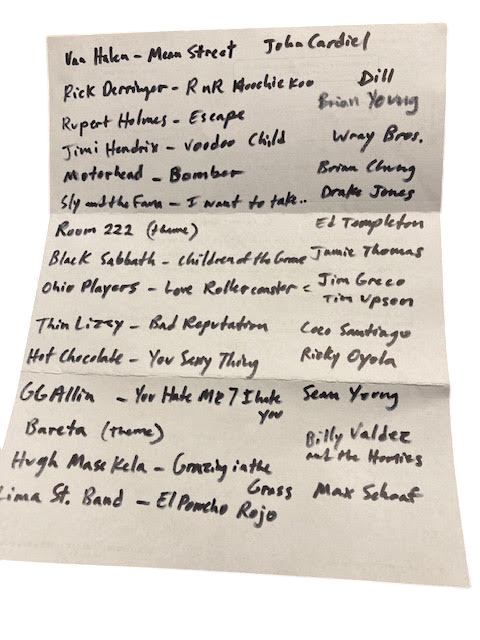 Van Halen - Mean Street John Cardiel
Rick Derringer - RnR Hoochie Koo Dill
Brian Young
Rupert Holmes - Escape
Jimi Hendrix - Voodoo Child Wray Bros.
Motorhead - Bomber Brian Chung
Sly and the Fam - I want to take.. Drake Jones
Room 222 (theme) Ed Templeton
Black Sabbath - Children of the Grave Jamie Thomas
Ohio Players - Love Rollercoaster < Jim Greco
Tim Upson
Thin Lizzy - Bad Reputation Coco Santiago
Hot Chocolate - You Sexy Thing Ricky Oyola
GG Allin - You Hate Me & I hate Sean Young
you
Bareta (theme) Billy Valdez
and the Homies
Hugh Masekela - Grazing in the
Grass Max Schaaf
Lima St. Band - El Poncho Rojo